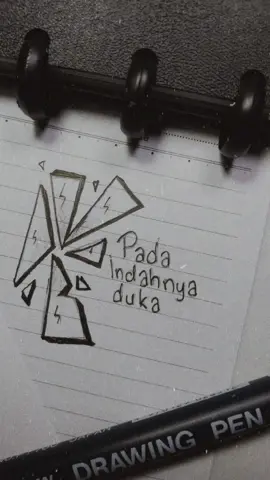 Pada
Indahnya
duka
DRAWING PEN